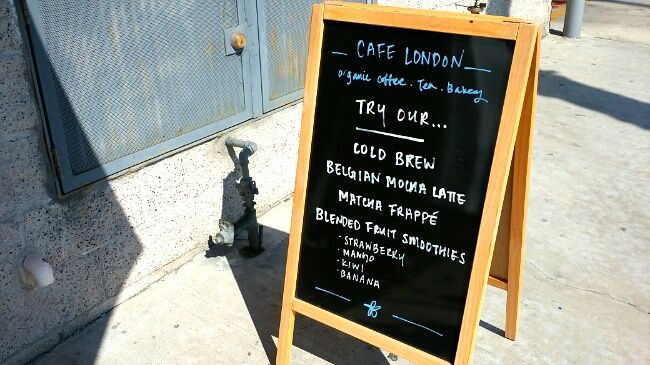 CAFE LONDON
organic coffee . Tea . Bakery
TRY OUR...
COLD BREW
BELGIAN MOCHA LATTE
MATCHA FRAPPÉ
BLENDED FRUIT SMOOTHIES
· STRAWBERRY
· MANGO
· KIWI
· BANANA